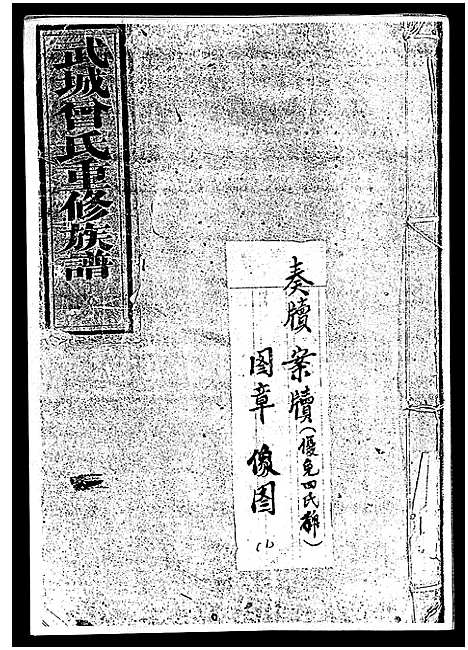 武城曾氏重修族譜
奏牘 案牘(優免四氏辦)
图章 像图
(1)